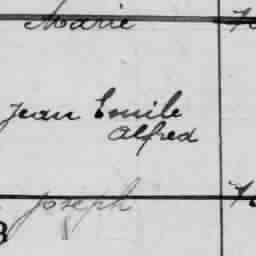 Marie
Jean Emile
Alfred
Joseph